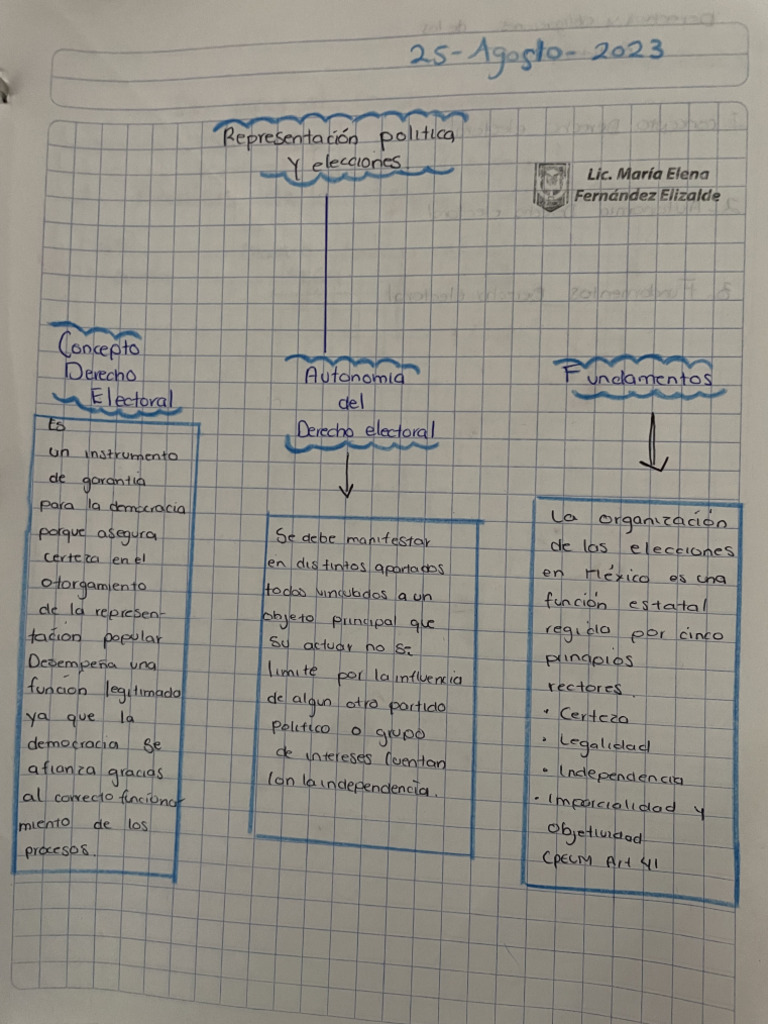 25-Agosto-2023
Representación política
y elecciones
Lic. María Elena
Fernández Elizalde
Concepto
Derecho
Electoral
Es
un instrumento
de garantía
para la democracia
porque asegura
certeza en el
otorgamiento
de la represen-
tación popular
Desempeña una
función legitimada
ya que la
democracia se
afianza gracias
al correcto funciona-
miento de los
procesos.
Autonomía
del
Derecho electoral
Se debe manifestar
en distintos apartados
todos vinculados a un
objeto principal que
su actuar no se
limite por la influencia
de algun otro partido
político o grupo
de intereses Cuentan
con la independencia.
Fundamentos
La organización
de las elecciones
en México es una
función estatal
regida por cinco
principios
rectores.
• Certeza
• Legalidad
• Independencia
• Imparcialidad y
objetividad
CPEUM Art 41